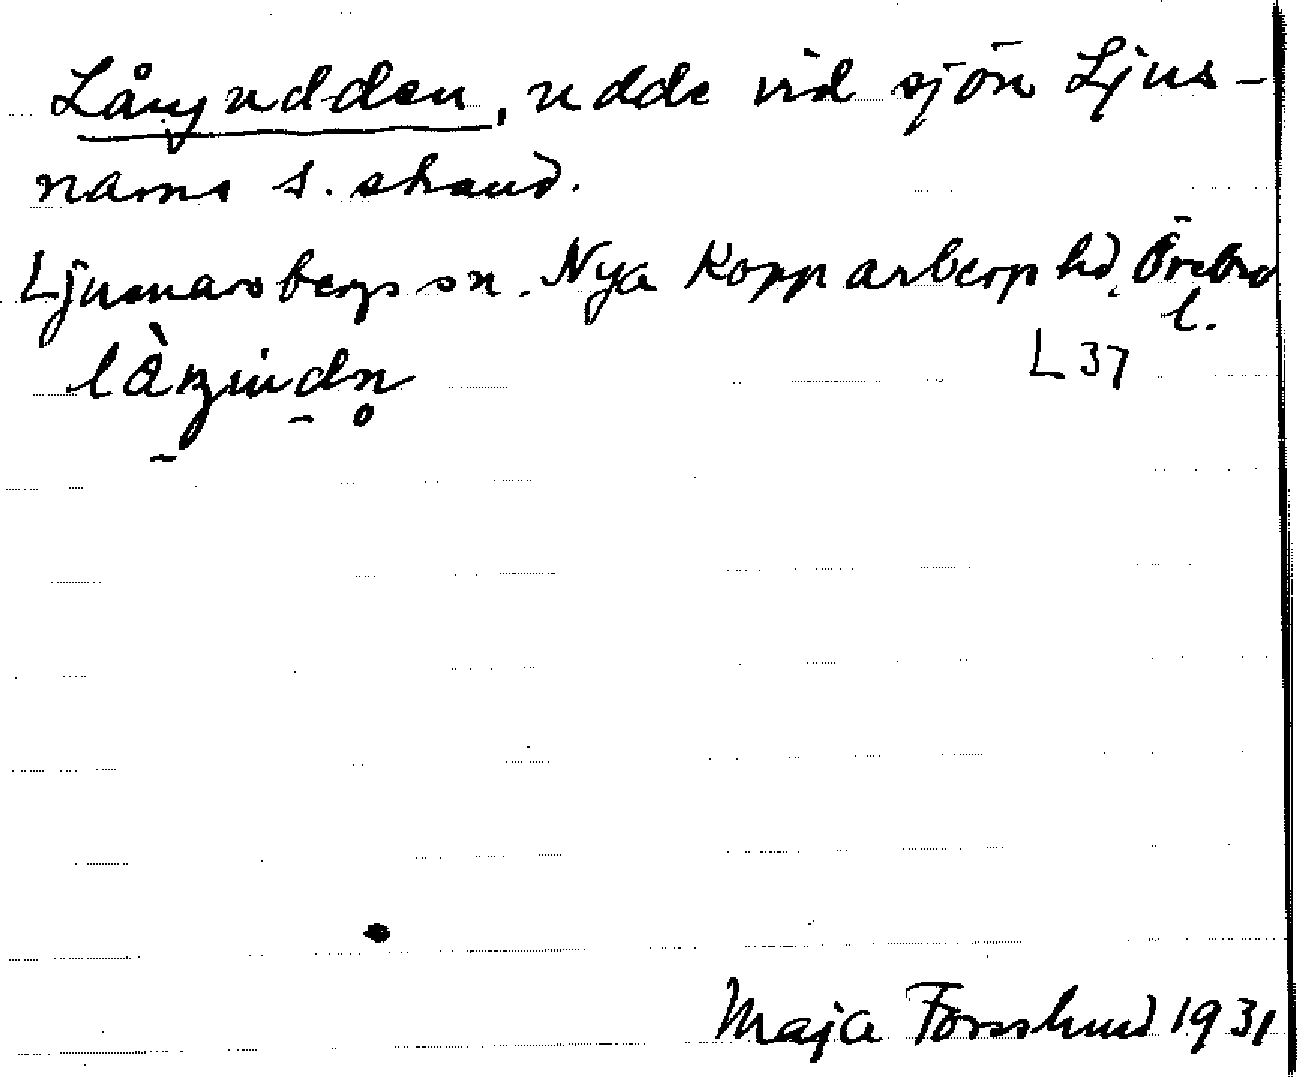 Långudden, udde vid sjön Ljus-
narns s. strand.
Ljusnarsbergs sn. Nya Kopparbergs hd, Örebro
l.
L 37
Maja Forsslund 1931